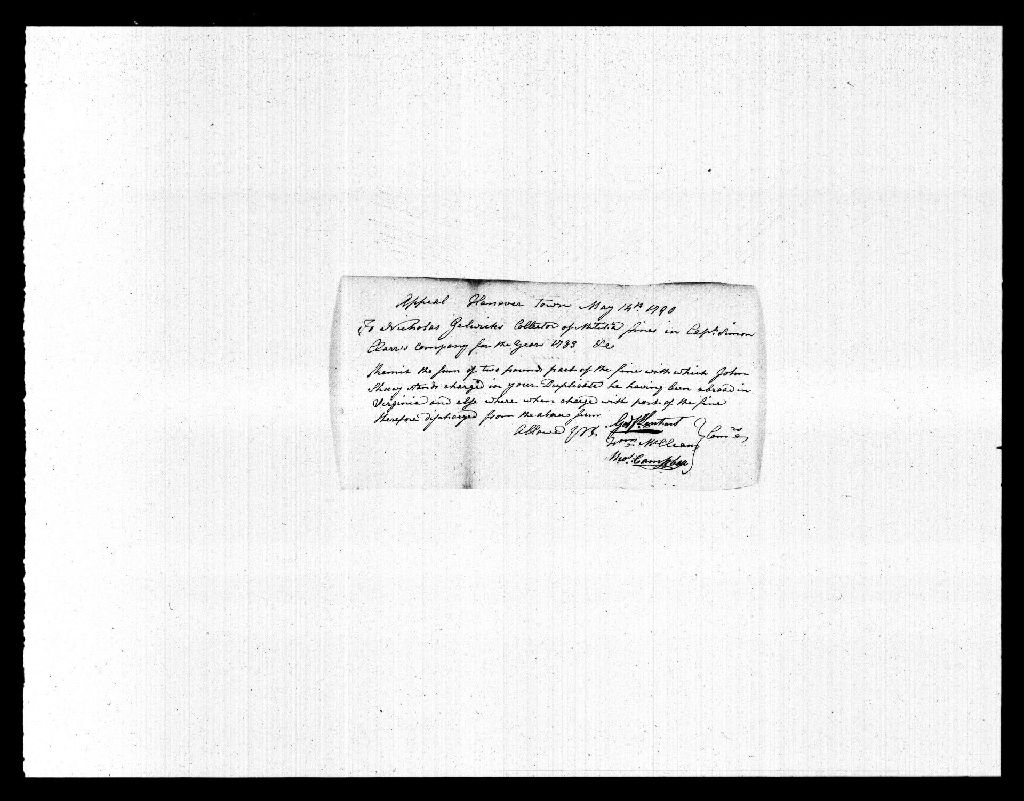 Appeal Hanover Town May 14th 1790
To Nicholas Gelwicks Collector of Militia fines in Capt. Simon
Clarr's Company for the Year 1783 &c
Remit the sum of two pounds part of the fine with which John
stands charged in your Duplicate he having been abroad in
Virginia and else where when charge with part of the fine
therefore discharged from the above sum
Allowed
McClean Com.rs